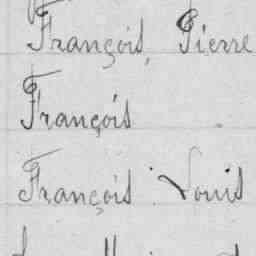 François, Pierre
François
François Louis